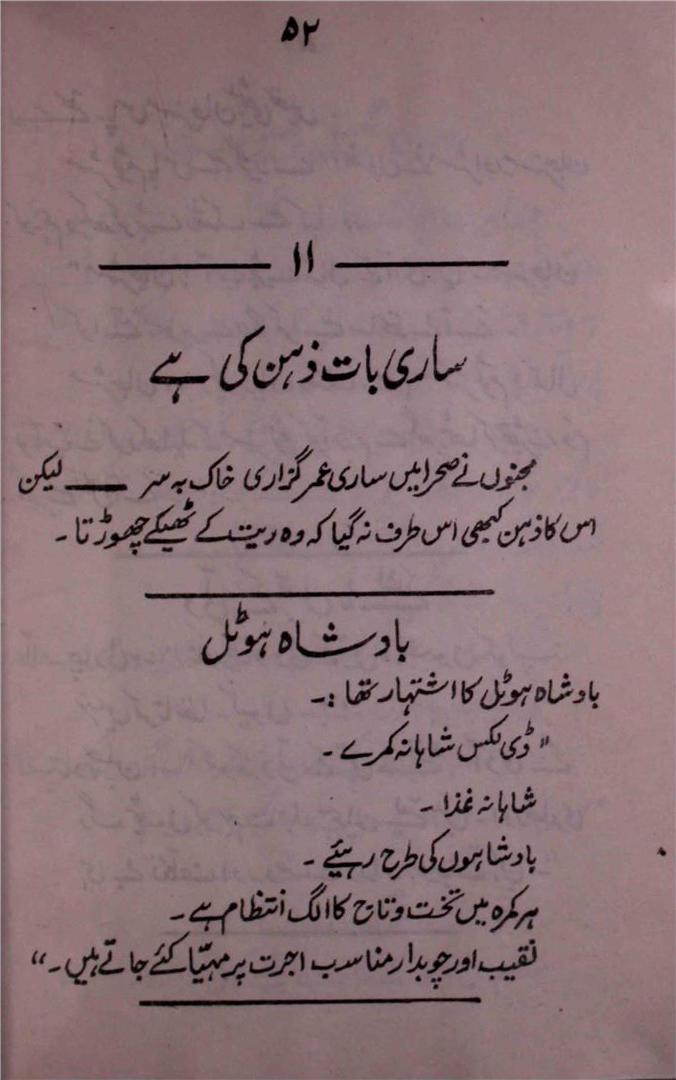 ۵۲
۱۱
ساری بات ذہن کی ہے
مجنوں نے صحرا میں ساری عمر گزاری خاک بہ سر ــــــ لیکن
اس کا ذہن کبھی اس طرف نہ گیا کہ وہ ریت کے ٹھیکے چھوڑتا۔
بادشاہ ہوٹل
بادشاہ ہوٹل کا اشتہار تھا :۔
"ڈی لکس شاہانہ کمرے ۔
شاہانہ غذا ۔
بادشاہوں کی طرح رہیئے ۔
ہر کمرہ میں تخت و تاج کا الگ انتظام ہے ۔
نقیب اور چوبدار مناسب اجرت پر مہیّا کئے جاتے ہیں ۔"